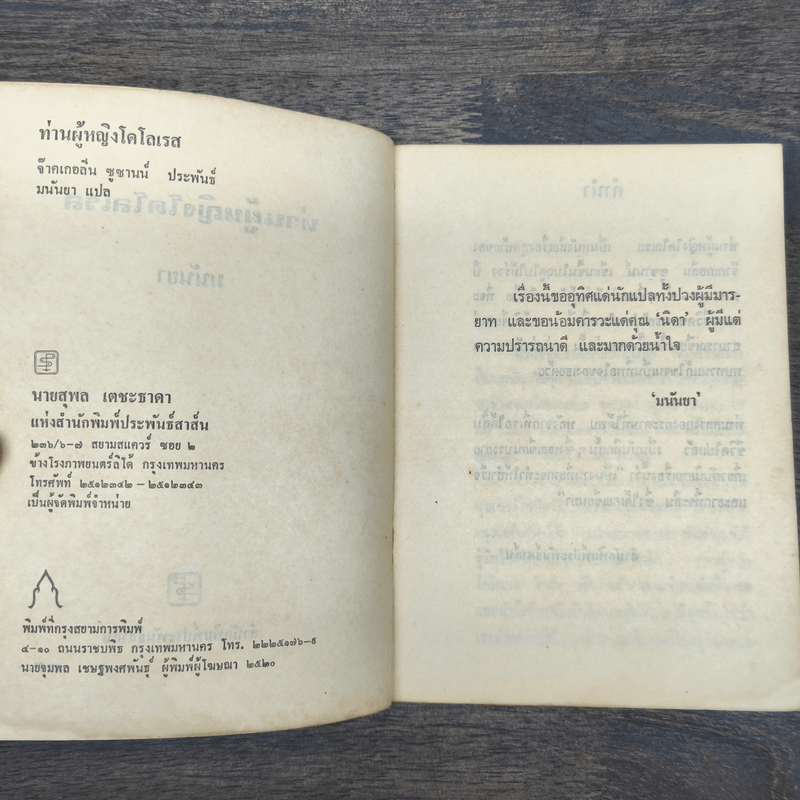 ท่านผู้หญิงโดโลเรส
จ๊าคเกอลีน ซูซานน์ ประพันธ์
มนันยา แปล
นายสุพล เตชะธาดา
แห่งสำนักพิมพ์ประพันธ์สาส์น
๒๓๖/๖-๗ สยามสแควร์ ซอย ๒
ข้างโรงภาพยนตร์ลิโด้ กรุงเทพมหานคร
โทรศัพท์ ๒๕๑๒๓๔๒ - ๒๕๑๒๓๔๓
เป็นผู้จัดพิมพ์จำหน่าย
พิมพ์ที่กรุงสยามการพิมพ์
๔-๑๐ ถนนราชบพิธ กรุงเทพมหานคร โทร. ๒๒๒๕๑๗๖-๙
นายจุมพล เชษฐพงศพันธุ์ ผู้พิมพ์ผู้โฆษณา ๒๕๒๐
เรื่องนี้ขออุทิศแด่นักแปลทั้งปวงผู้มีมาร-
ยาท และขอน้อมคารวะแด่คุณ 'นิดา' ผู้มีแต่
ความปรารถนาดี และมากด้วยน้ำใจ
'มนันยา'